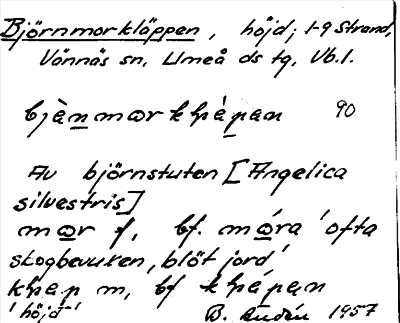 Björnmorkläppen, höjd, 1-9 Strand,
Vännäs sn, Umeå ds tg, Vb.l.
bjǜn mɷr khlápan 90
Av björnstuten [Angelica
silvestris]
mɷr f, bf. mɷ́ra 'ofta
skogbevuxen, blöt jord'
klap m, bf klápan
'höjd' B. 1957